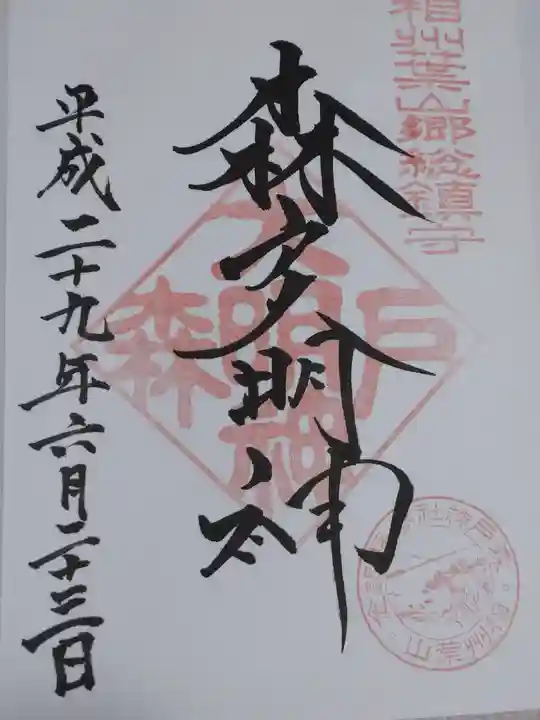 相州葉山郷総鎮守
森戸明神
森戸大明神
平成二十九年六月二十三日